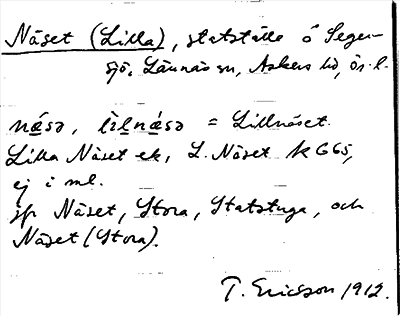 Näset (Lilla), statställe å Seger-
sjö, Lännäs sn, Askers hd, Ör. l.
næ̀sə, lìlnǽsə = Lillnäset.
Lilla Näset ek, L. Näset k G65,
ej i ml.
jfr Näset, Stora, Statstuga, och
Näset (Stora).
T. Ericsson 1912.